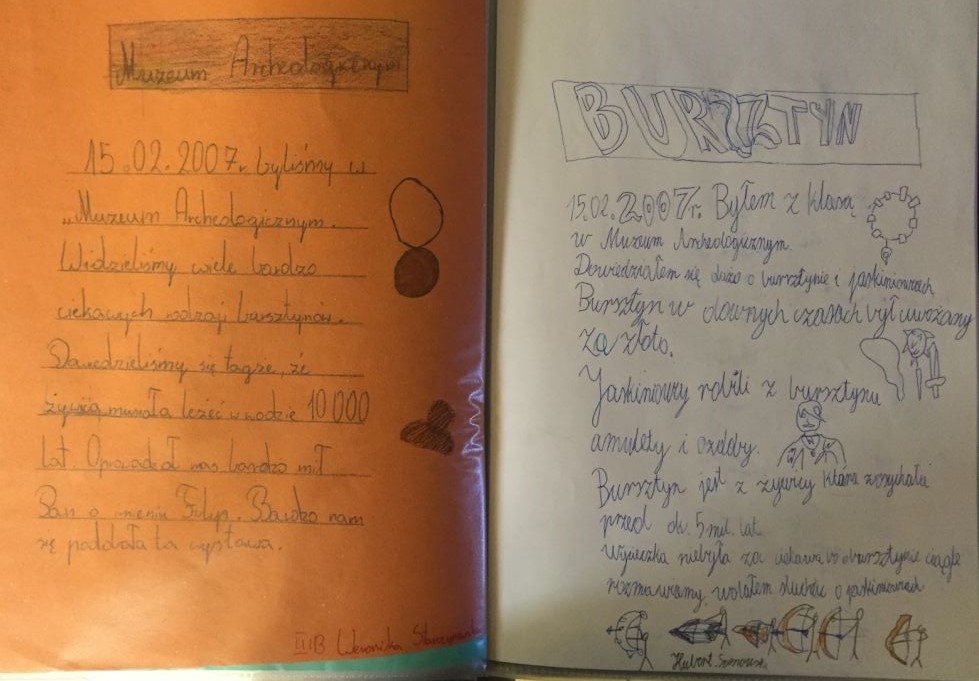 Muzeum Archeologicznym
15.02.2007r. byliśmy w
„Muzeum Archeologicznym.
Widzieliśmy wiele bardzo
ciekawych rodzaji bursztynów.
Dowiedzieliśmy się tagże, że
żywica musiała leżeć w wodzie 10 000
lat. Oprowadzał nas bardzo mił
Pan o imieniu Filip. Bardzo nam
się poddała ta wystawa.
III B Weronika
BURSZTYN
15.02.2007r. Byłem z klasą
w Muzeum Archeologicznym.
Dowiedziałem się dużo o bursztynie i jaskiniowcach
Bursztyn w dawnych czasach był uważany
za złoto.
Jaskiniowcy robili z bursztynu
amulety i ozdoby.
Bursztyn jest z żywicy która zasychała
przed ok. 5 mil. lat
Wycieczka niebyła za ciekawa bo o bursztynie ciągle
rozmawiamy, wolałem słuchać o jaskiniowcach
Hubert